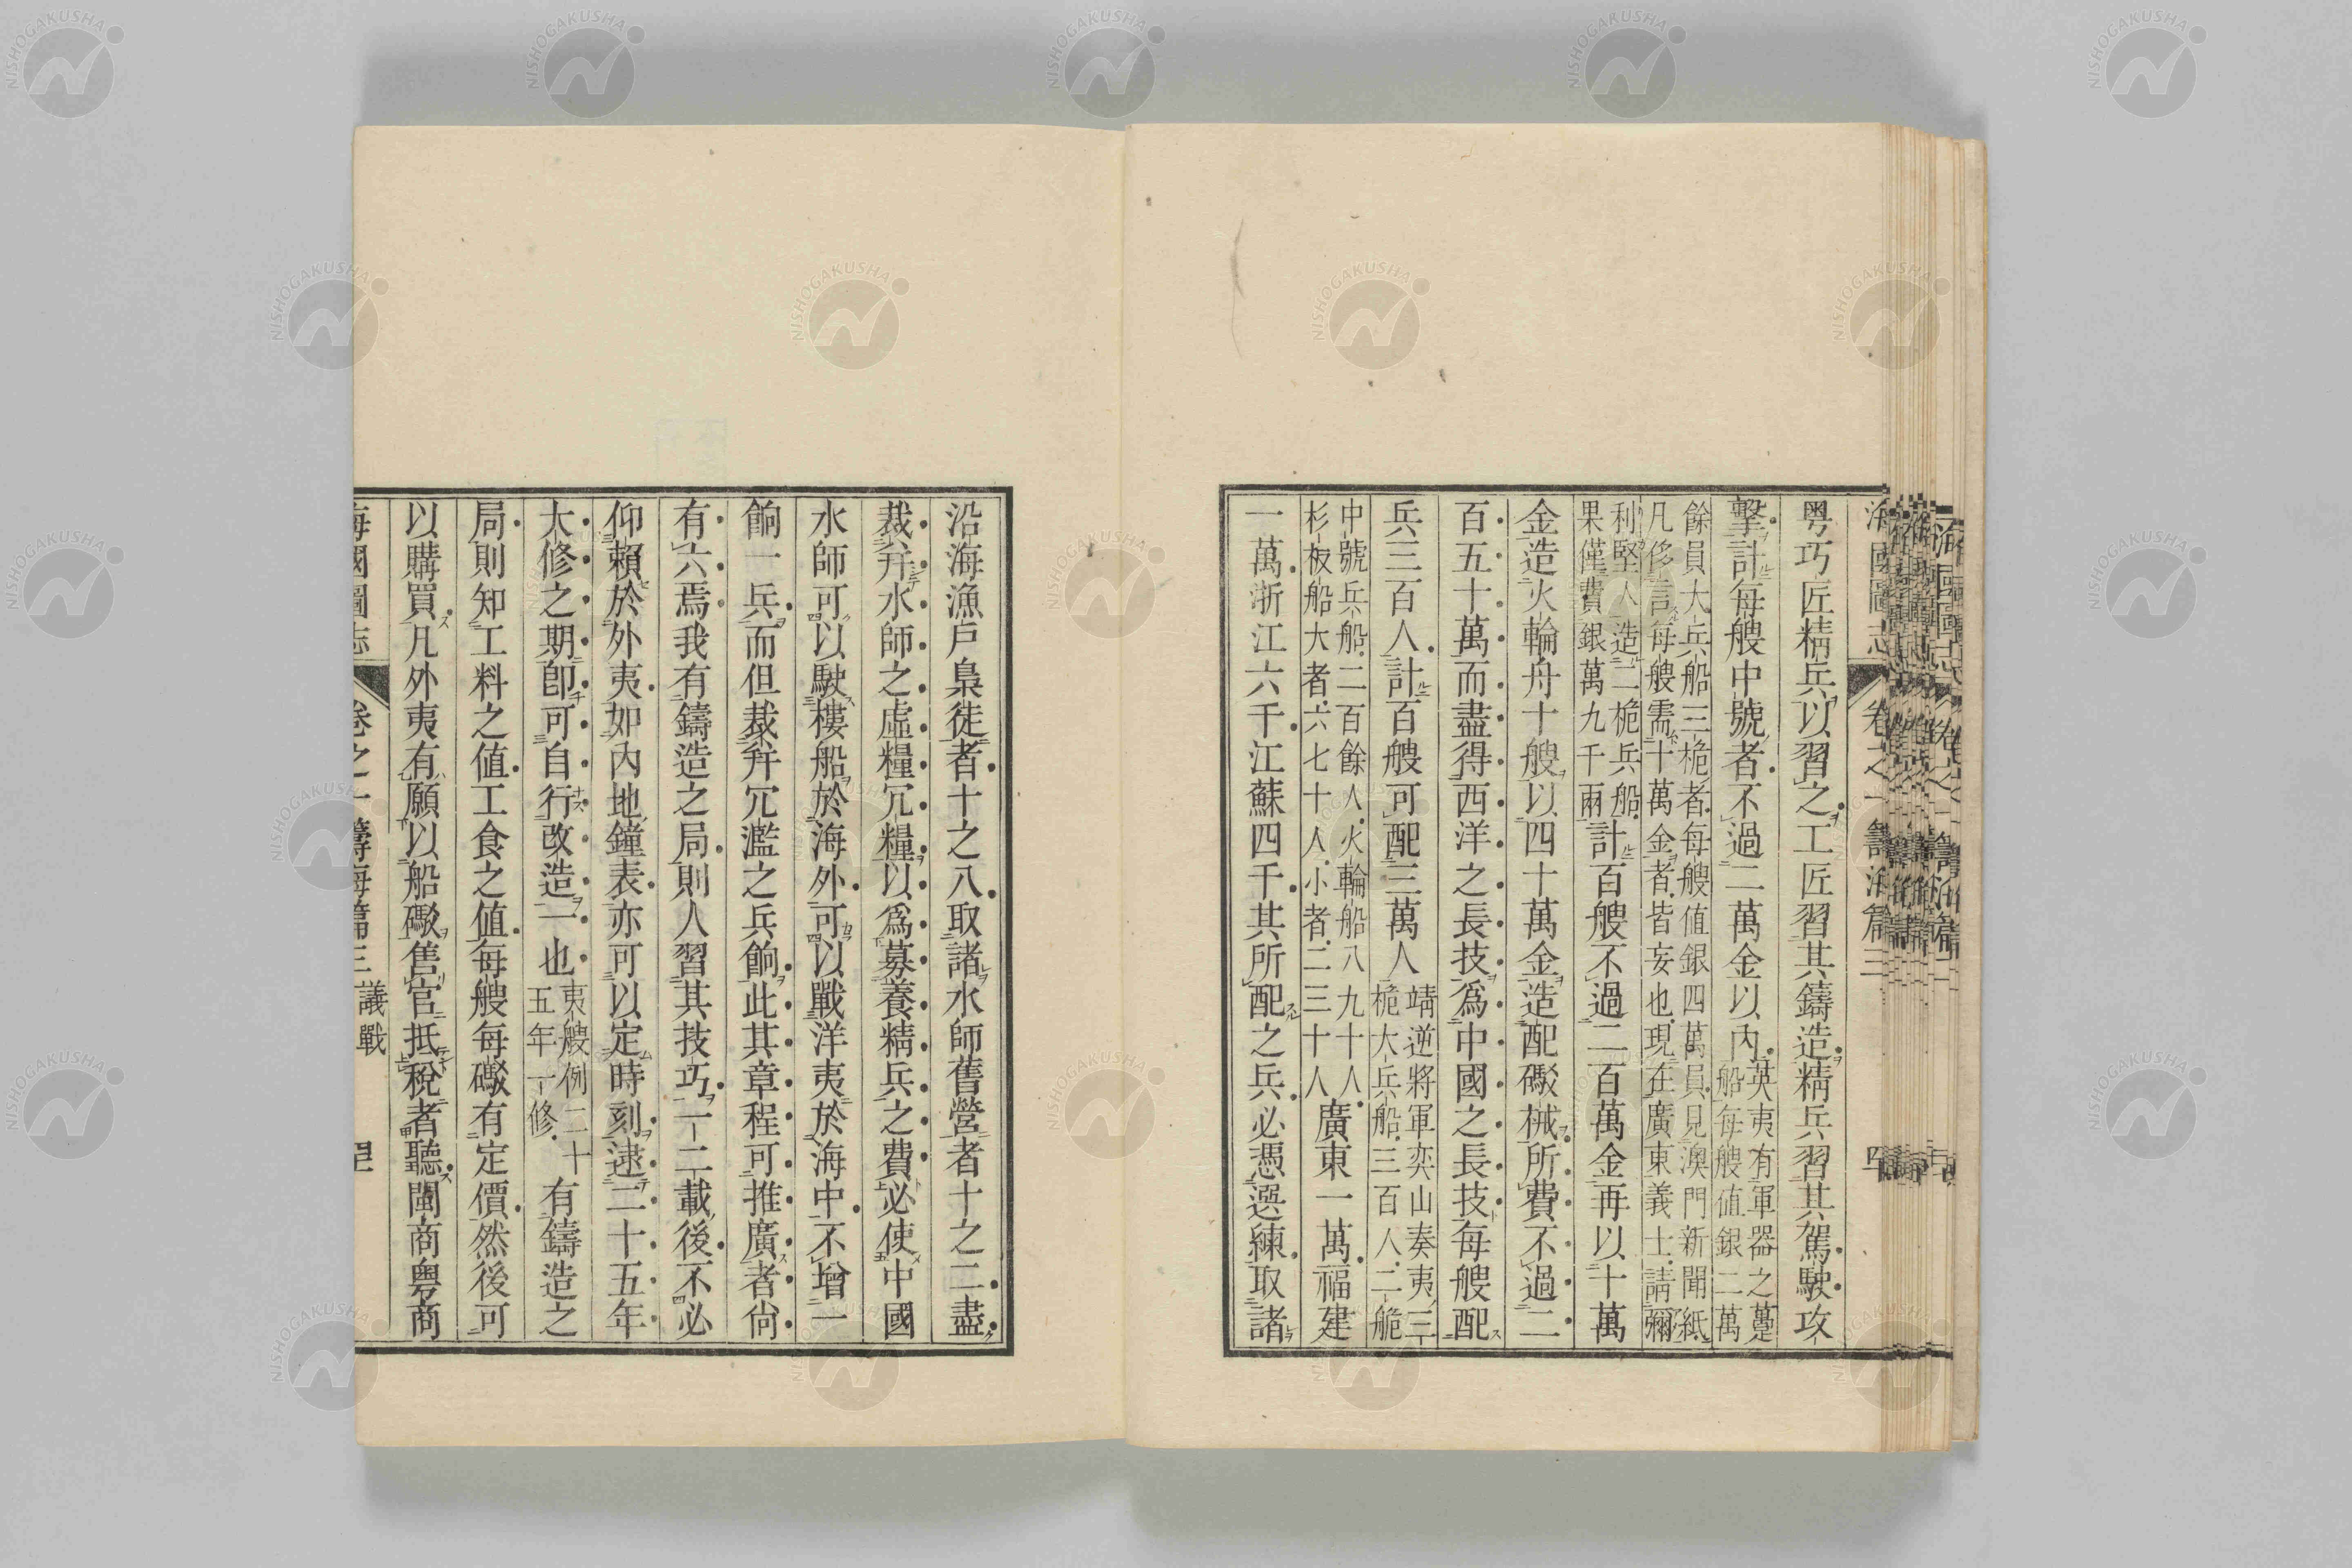 粤巧匠精兵以習之工匠習其鑄造精兵習其駕駛攻
擊計每艘中號者不過二萬金以內英夷有軍器之躉船每艘值銀二萬
餘員大兵船三桅者每艘值銀四萬員見澳門新聞紙凡侈言每艘需十萬金者皆妄也現在廣東義士請彌
利堅人造二桅兵船果僅費銀萬九千兩計百艘不過二百萬金再以十萬
金造火輪舟十艘以四十萬金造配礮械所費不過二
百五十萬而盡得西洋之長技爲中國之長技每艘配
兵三百人計百艘可配三萬人靖逆將軍奕山奏夷三桅大兵船三百人二桅
中號兵船二百餘人火輪船八九十人杉板船大者六七十人小者二三十人廣東一萬福建
一萬浙江六千江蘇四千其所配之兵必憑選練取諸
沿海漁戶梟徒者十之八取諸水師舊營者十之二盡
裁幷水師之虛糧冗糧以爲募養精兵之費必使中國
水師可以駛樓船於海外可以戰洋夷於海中不增一
餉一兵而但裁幷冗濫之兵餉此其章程可推廣者尙
有六焉我有鑄造之局則人習其技巧一二載後不必
仰賴於外夷如內地鐘表亦可以定時刻逮二十五年
大修之期卽可自行改造一也夷艘例二十五年一修有鑄造之
局則知工料之值工食之值每艘每礮有定價然後可
以購買凡外夷有願以船礮售官抵稅者聽閩商粤商
海國圖志 卷之一籌海篇三 議戰
NISHOGAKUSHA